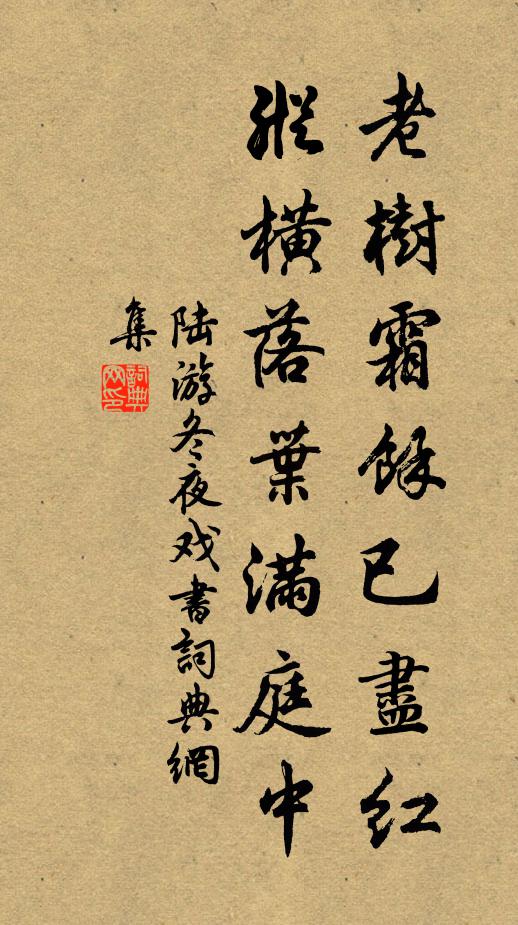 老樹霜餘已盡紅
縱橫落葉滿庭中
陆游冬夜戏書詞典網
集
詞典
网印